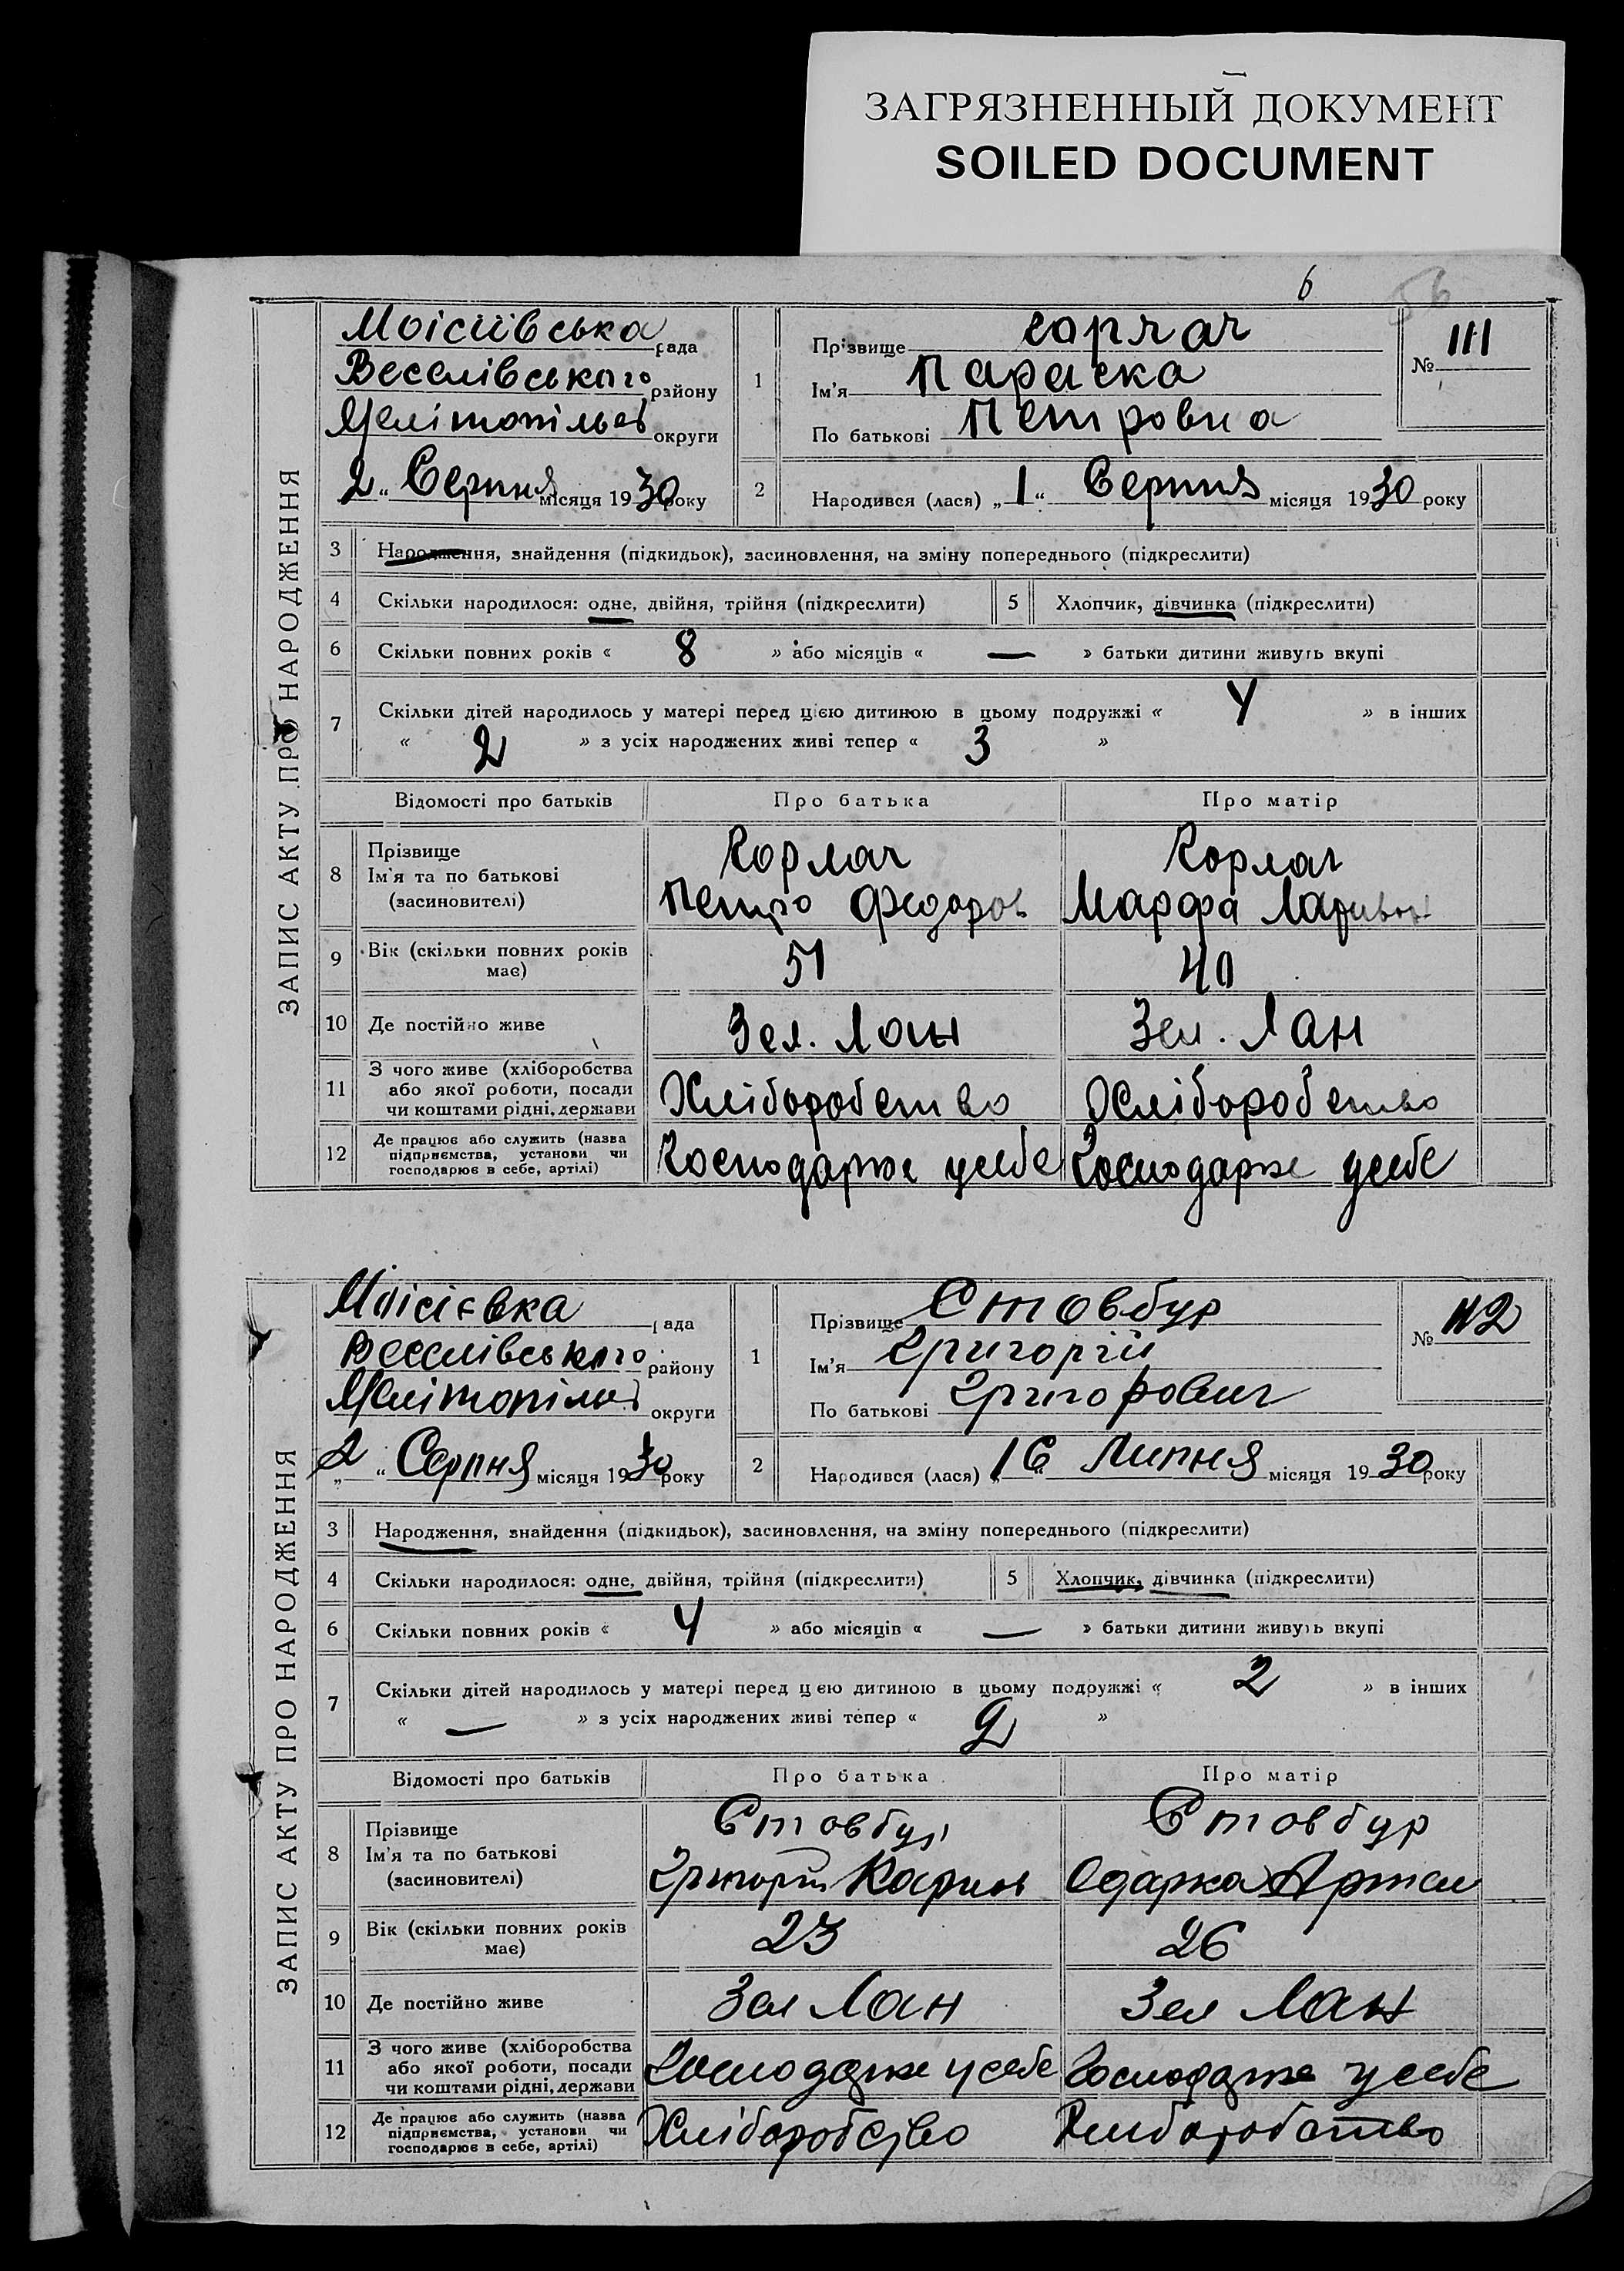 ЗАГРЯЗНЕННЫЙ ДОКУМЕНТ
SOILED DOCUMENT
6
56
ЗАПИС АКТУ ПРО НАРОДЖЕННЯ
Моісиївська рада
Веселівського району
Мелітопільсь округи
2 " Серпня місяця 1930 року
1
Прізвище
Ім'я Параска
По батькові Петровна
№ 111
2 Народився (лася) „1" Серпня місяця 1930 року
3 Народження, знайдення (підкидьок), засиновлення, на зміну попереднього (підкреслити)
4 Скільки народилося: одне, двійня, трійня (підкреслити) 5 Хлопчик, дівчинка (підкреслити)
6 Скільки повних років « 8 » або місяців « — » батьки дитини живуть вкупі
7 Скільки дітей народилось у матері перед цією дитиною в цьому подружжі « 4 » в інших
« 2 » з усіх народжених живі тепер « 3 »
Відомості про батьків Про батька Про матір
8 Прізвище
Ім'я та по батькові
(засиновителі)
Кормач
Петро Федоров
Кормач
Марфа Ларивон
9 Вік (скільки повних років має) 51 40
10 Де постійно живе Зел. Лан Зел. Лан
11 З чого живе (хліборобства
або якої роботи, посади
чи коштами рідні, держави
Хліборобство Хліборобство
12 Де працює або служить (назва
підприємства, установи чи
господарює в себе, артілі)
Господарже усебе Господарже усебе
ЗАПИС АКТУ ПРО НАРОДЖЕННЯ
Моісієвка рада
Веселівського району
Мелітопільсь округи
„2" Серпня місяця 1930 року
1
Прізвище Стовбур
Ім'я Григорій
По батькові Григорович
№ 112
2 Народився (лася) „16" Липня місяця 1930 року
3 Народження, знайдення (підкидьок), засиновлення, на зміну попереднього (підкреслити)
4 Скільки народилося: одне, двійня, трійня (підкреслити) 5 Хлопчик, дівчинка (підкреслити)
6 Скільки повних років « 4 » або місяців « — » батьки дитини живуть вкупі
7 Скільки дітей народилось у матері перед цією дитиною в цьому подружжі « 2 » в інших
« — » з усіх народжених живі тепер « 2 »
Відомості про батьків Про батька Про матір
8 Прізвище
Ім'я та по батькові
(засиновителі)
Стовбур
Григорій Карпов
Стовбур
Одарка
9 Вік (скільки повних років має) 23 26
10 Де постійно живе Зел Лан Зел Лан
11 З чого живе (хліборобства
або якої роботи, посади
чи коштами рідні, держави
Господарже усебе Господарже усебе
12 Де працює або служить (назва
підприємства, установи чи
господарює в себе, артілі)
Хліборобство Хліборобство